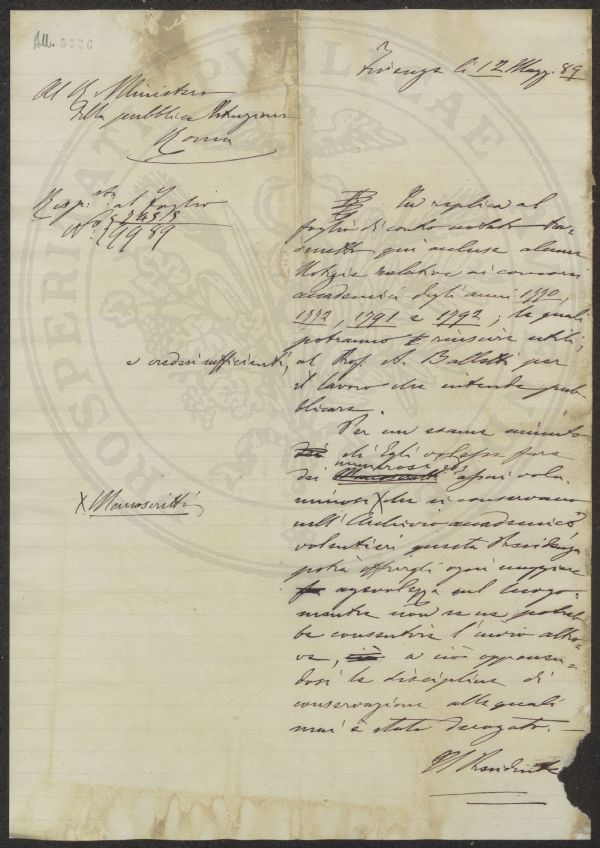 All. 5726
Firenze li 12 Magg. 89
Al R. Ministero
della pubblica Istruzione
Roma
Risp.sta al foglio
N.
In replica al
foglio di contro notato tras-
metto qui accluse alcune
Notizie relative ai concorsi
accademici degli anni 1770,
1772, 1791 e 1792; le quali
potranno riuscire utili,
e credesi sufficienti,
al Prof. A. Balletti per
il lavoro che intende pub-
blicare.
Per un esame minuto
che Egli volesse fare
dei numerosi ed assai volu-
minosi X che si conservano
X Manoscritti
nell'Archivio accademico
volentieri questa Presidenza
potrà offrirgli ogni maggiore
agevolezza sul luogo
mentre non se ne potreb-
be consentire l'invio altro-
ve, a ciò opponen-
dosi le discipline di
conservazione alle quali
mai è stato derogato.
Il Presidente